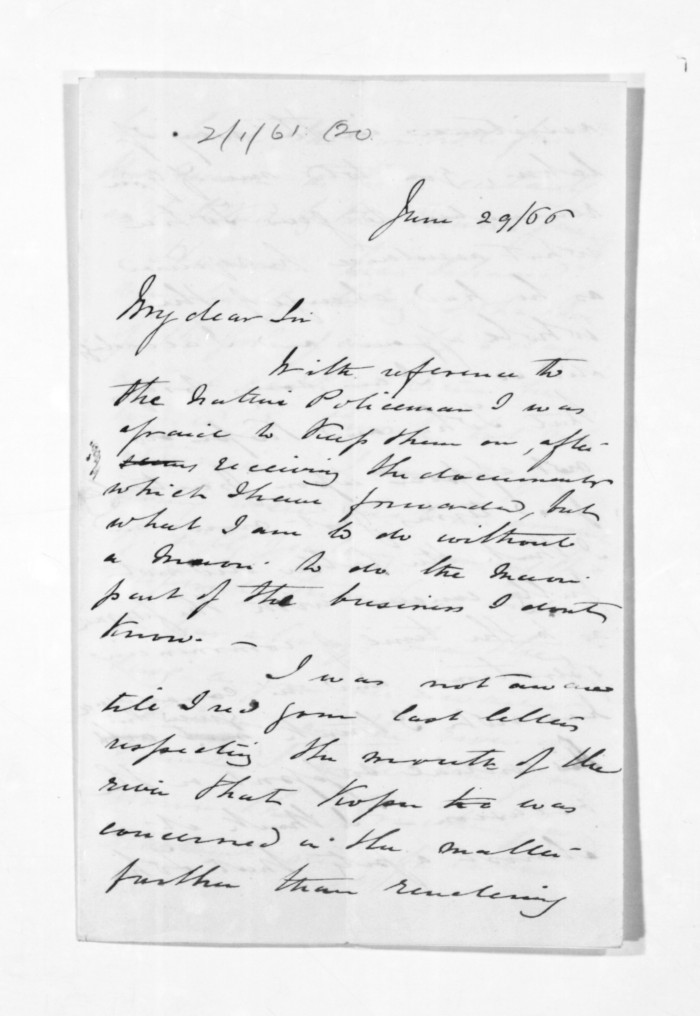 2/1/61 (20
June 29/66
My dear Sir
With reference to
the Native Policeman I was
afraid to keep them on, after
receiving the documents
which I have forwarded, but
what I am to do without
a Maori to do the Maori
part of the business I dont
know. —
I was not aware
till I recd your last letters
respecting the mouth of the
river that Kopu was
concerned in the matter
further than rendering